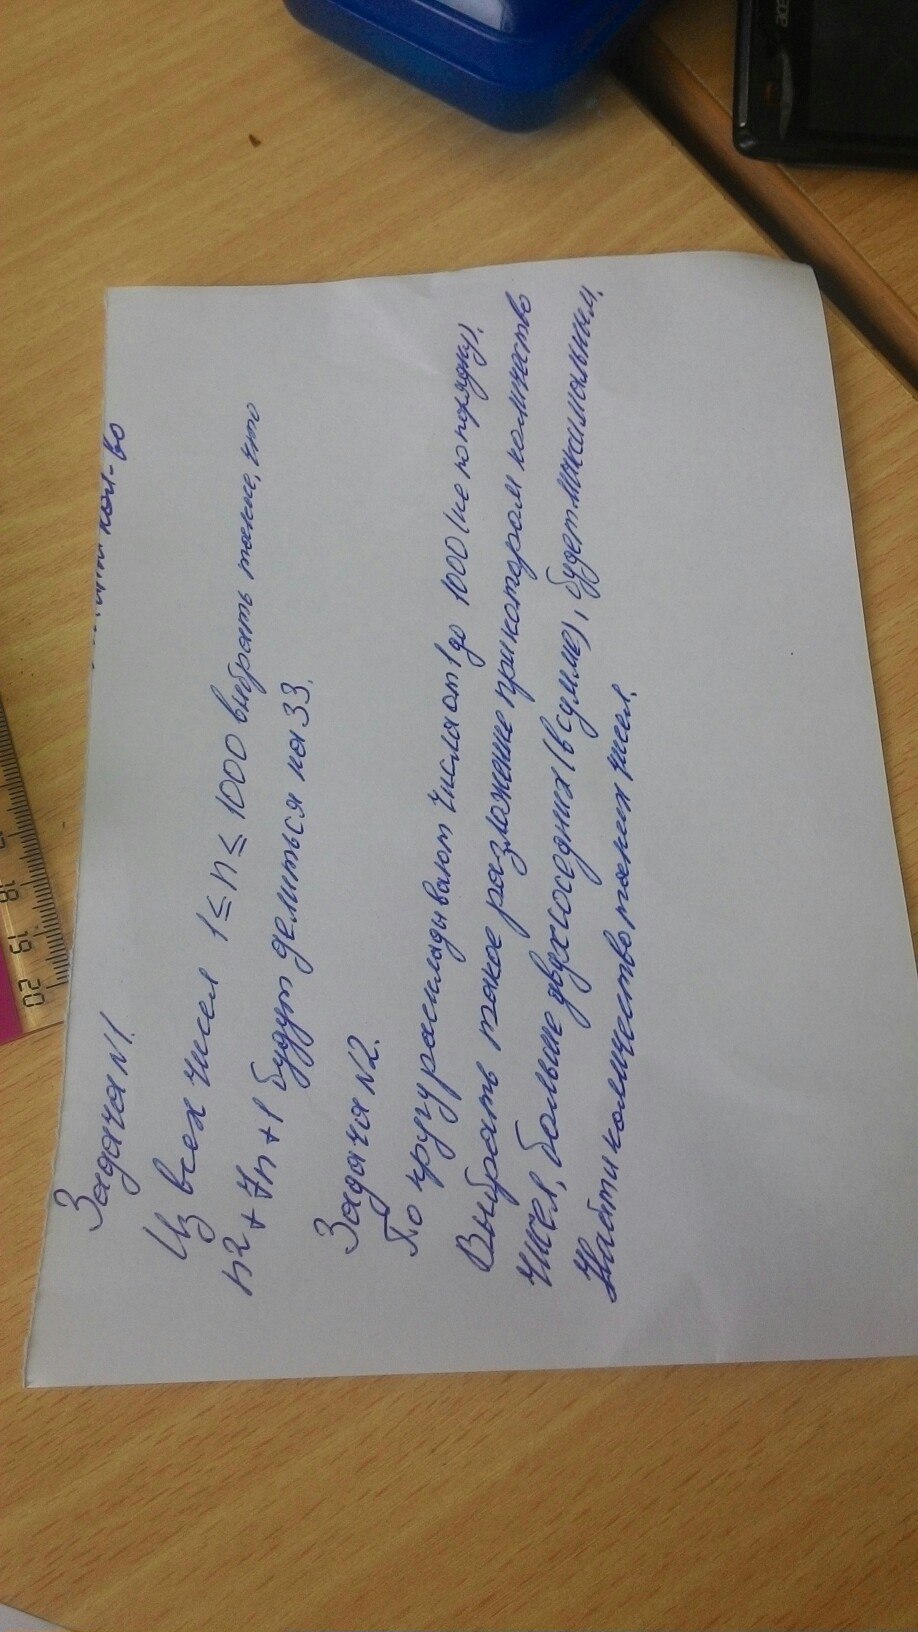 кол-во
Задача N1.
Из всех чисел 1 ≤ n ≤ 1000 выбрать такие, что
n2 + 7n + 1 будут делиться на 33.
Задача N2.
По кругу раскладывают числа от 1 до 1000 (не по порядку).
Выбрать такое разложение при котором количество
чисел, больше двух соседних (в сумме), будет максимальным.
Найти количество таких чисел.
20 19 18
acer